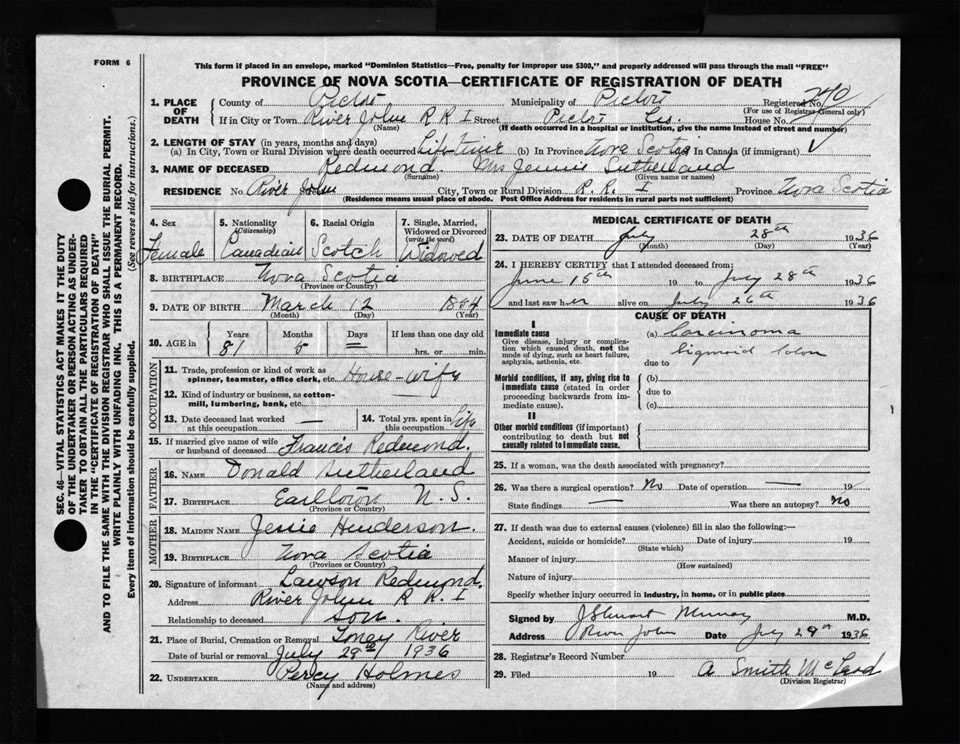 FORM 6
This form if placed in an envelope, marked "Dominion Statistics—Free, penalty for improper use $300," and properly addressed will pass through the mail "FREE"
PROVINCE OF NOVA SCOTIA—CERTIFICATE OF REGISTRATION OF DEATH
1. PLACE OF DEATH
County of Pictou Municipality of Pictou Registered No.
(For use of Registrar General only)
If in City or Town River John R R 1 Street Pictou Co. House No.
(Name) (If death occurred in a hospital or institution, give the name instead of street and number)
2. LENGTH OF STAY (in years, months and days)
(a) In City, Town or Rural Division where death occurred Life Time (b) In Province Nova Scotia In Canada (if immigrant)
3. NAME OF DECEASED Redmond Mrs Jennie Sutherland
(Surname) (Given name or names)
RESIDENCE No. River John City, Town or Rural Division R. R. 1 Province Nova Scotia
(Residence means usual place of abode. Post Office Address for residents in rural parts not sufficient)
SEC. 46—VITAL STATISTICS ACT MAKES IT THE DUTY
OF THE UNDERTAKER OR PERSON ACTING AS UNDER-
TAKER TO OBTAIN ALL THE PARTICULARS REQUIRED
IN THE "CERTIFICATE OF REGISTRATION OF DEATH"
AND TO FILE THE SAME WITH THE DIVISION REGISTRAR WHO SHALL ISSUE THE BURIAL PERMIT.
WRITE PLAINLY WITH UNFADING INK. THIS IS A PERMANENT RECORD.
Every item of information should be carefully supplied. (See reverse side for instructions.)
4. Sex
Female
5. Nationality
(Citizenship)
Canadian
6. Racial Origin
Scotch
7. Single, Married, Widowed or Divorced
(write the word)
Widowed
8. BIRTHPLACE Nova Scotia
(Province or Country)
9. DATE OF BIRTH March 12
(Month) (Day) (Year)
10. AGE in Years Months Days If less than one day old
81 hrs. or min.
OCCUPATION
11. Trade, profession or kind of work as
spinner, teamster, office clerk, etc. House-wife
12. Kind of industry or business, as cotton-
mill, lumbering, bank, etc.
13. Date deceased last worked
at this occupation
14. Total yrs. spent in Life
15. If married give name of wife
or husband of deceased Francis Redmond.
FATHER
16. NAME Donald Sutherland
17. BIRTHPLACE Earltown N. S.
(Province or Country)
MOTHER
18. MAIDEN NAME Jessie Henderson.
19. BIRTHPLACE Nova Scotia
(Province or Country)
20. Signature of informant Lawson Redmond.
Address River John R R 1
Relationship to deceased son.
21. Place of Burial, Cremation or Removal Toney River
Date of burial or removal July 29th 1936
22. UNDERTAKER Percy Holmes
(Name and address)
MEDICAL CERTIFICATE OF DEATH
23. DATE OF DEATH July 28th 1936
(Month) (Day) (Year)
24. I HEREBY CERTIFY that I attended deceased from:
June 15th 19 to July 28th 1936
and last saw her alive on July 26th 1936
CAUSE OF DEATH
I
Immediate cause
Give disease, injury or complica-
tion which caused death, not the
mode of dying, such as heart failure,
asphyxia, asthenia, etc.
(a) Carcinoma
Sigmoid Colon
due to
Morbid conditions, if any, giving rise to
immediate cause (stated in order
proceeding backwards from im-
mediate cause).
(b)
due to
(c)
II
Other morbid conditions (if important)
contributing to death but not
causally related to immediate cause.
25. If a woman, was the death associated with pregnancy?
26. Was there a surgical operation? No Date of operation — 19
State findings — Was there an autopsy? no
27. If death was due to external causes (violence) fill in also the following:—
Accident, suicide or homicide? Date of injury 19
(State which)
Manner of injury
(How sustained)
Nature of injury
Specify whether injury occurred in industry, in home, or in public place
Signed by J Stuart Murray M.D.
Address River John Date July 29th 1936
28. Registrar's Record Number
29. Filed 19 A Smith McLeod
(Division Registrar)